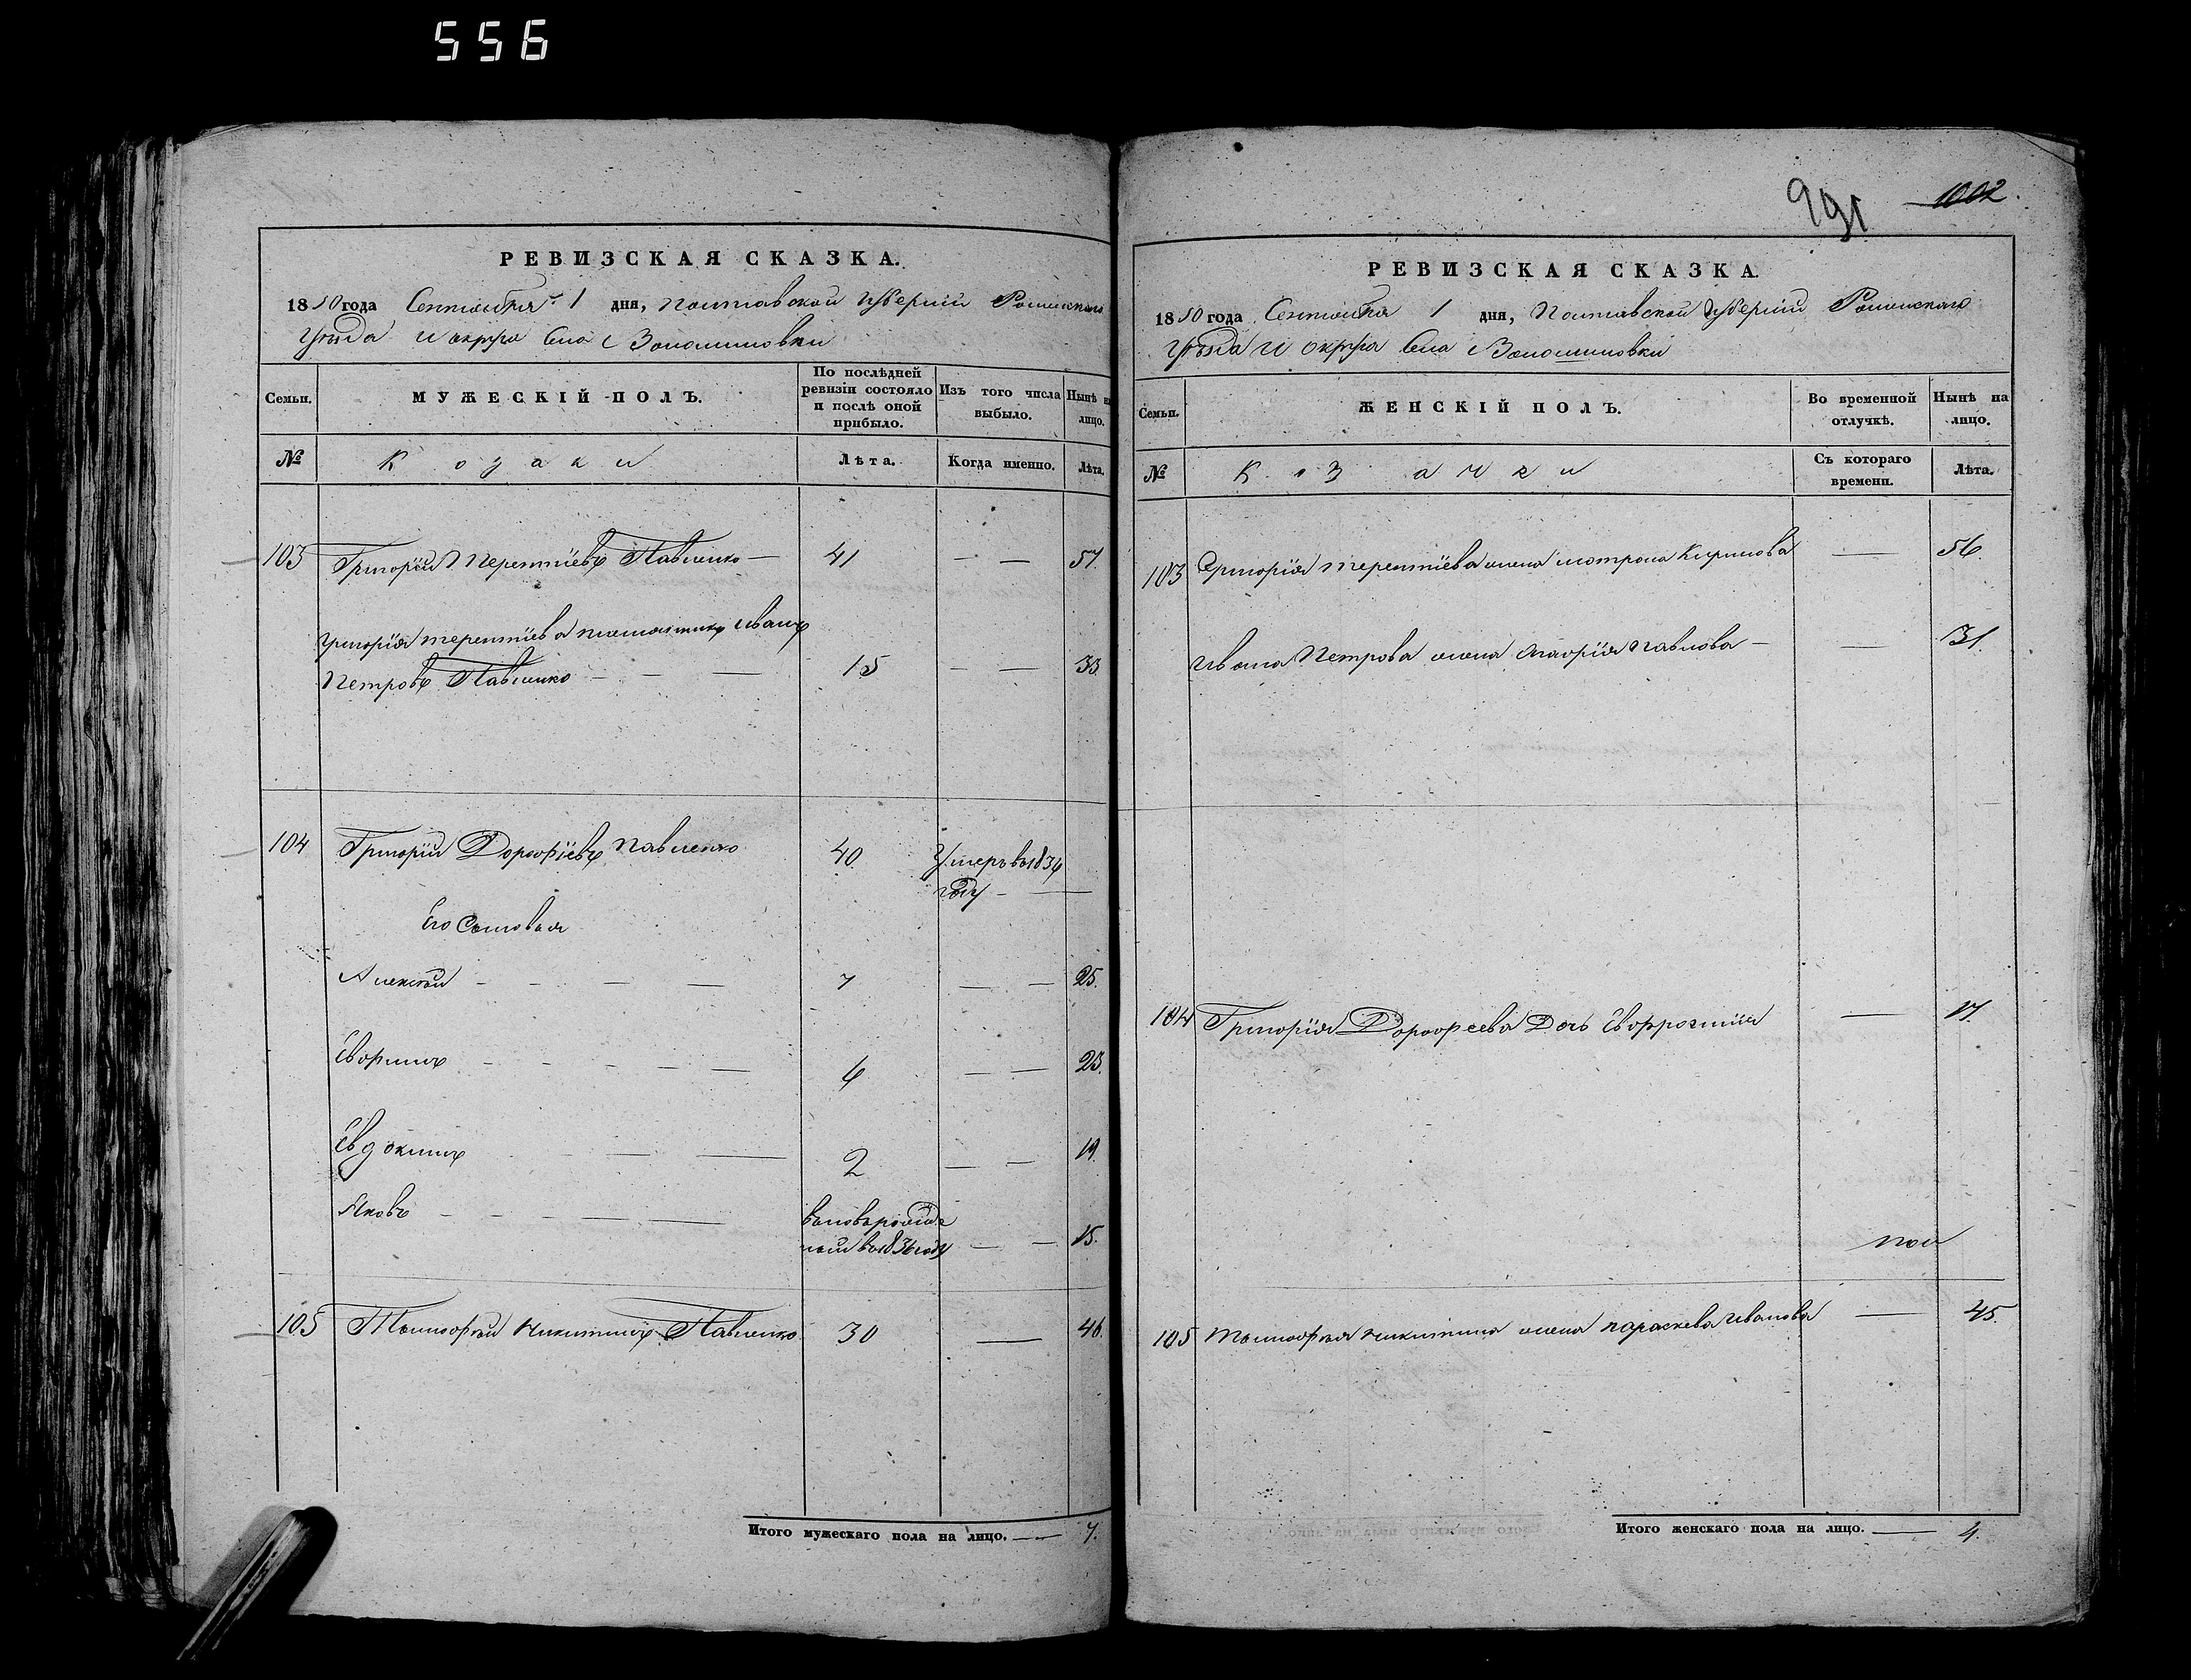 556
РЕВИЗСКАЯ СКАЗКА.
1850 года Сентября 1 дня, Полтавской Губернии Роменского
Уѣзда и округа Села
МУЖЕСКІЙ ПОЛЪ.
Семьи.
По послѣдней ревизіи состояло и послѣ оной прибыло.
Изъ того числа выбыло.
Нынѣ на лицо.
№ Козаки Лѣта. Когда именно. Лѣта.
103 Григорій Терентіевъ Павленко — 41 — — 57.
Григорія терентіева племянникъ Иванъ
Петровъ Павленко — — — 15 — — 33.
104 Григорій Дорофіевъ Павленко 40 Умеръ въ 1834
году —
Его Сыновья
Алексѣй — — — — 7 — — 25.
— — — — — — 23.
Евдокимъ — — 2 — — 19.
Яковъ — — — — — вновьрожде
ный въ 1836 году — — 15.
105 Тимофѣй Никитинъ Павленко 30 — 46.
Итого мужескаго пола на лицо. — 7.
991 1002.
РЕВИЗСКАЯ СКАЗКА.
1850 года Сентября 1 дня, Полтавской Губерніи Роменского
Уѣзда и округа Села
Семьи.
ЖЕНСКІЙ ПОЛЪ.
Во временной отлучкѣ.
Нынѣ на лицо.
№ Козачки Съ котораго времени. Лѣта.
103 Григорія терентіева жена мотрона Кирилова — 56.
Ивана Петрова жена Павлова — — 31.
104 Григорія Дорофеева Дочь — 17.
105 Тимофѣя Никитина жена параскева Иванова — 45.
Итого женскаго пола на лицо. — 4.